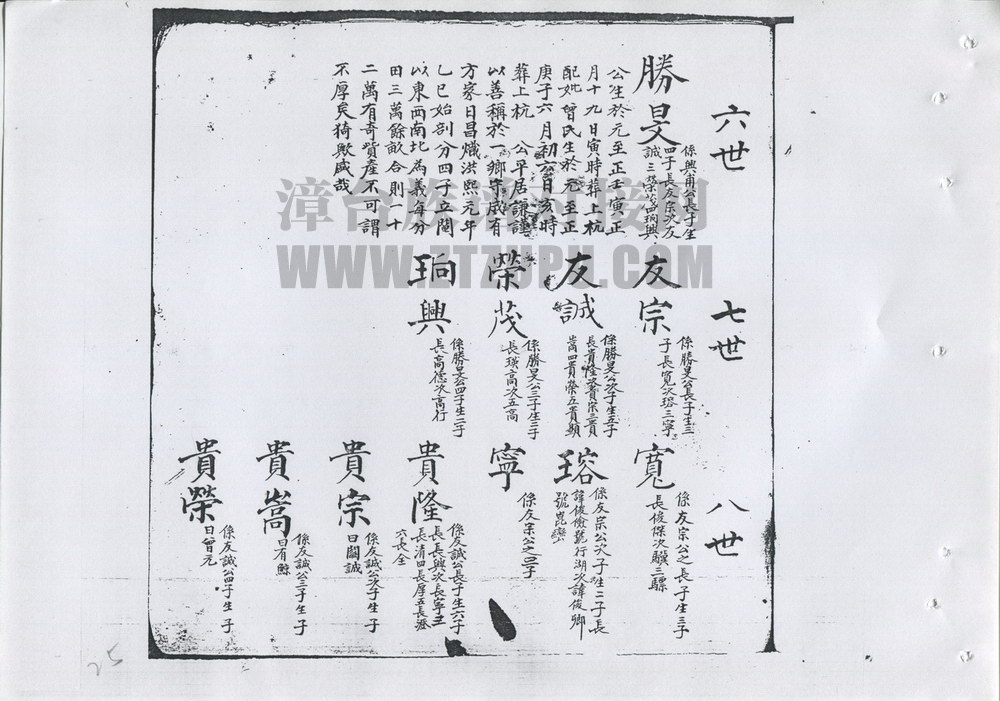 六世
勝旻
係興甫公長子生
四子長友宗次友
誠三榮茂四珦興
公生於元至正壬寅正
月十九日寅時葬上杭
配妣曾氏生於元至正
庚子六月初六日亥時
葬上杭 公平居謙謹
以善稱於一鄉宗戚有
方家日昌熾洪熙元年
乙巳始剖分四子立鬮
以東西南北為義每分
田三萬餘畝合則一十
二萬有奇貲產不可謂
不厚矣猗歟盛哉
七世
友宗
係勝旻公長子生三
子長寬次瑢三寧
友誠
係勝旻公次子生五子
長貴隆次貴宗三貴
嵩四貴榮五貴顯
榮茂
係勝旻公三子生三子
長瑛高次五高
珦興
係勝旻公四子生二子
長高德次高行
八世
寬
係友宗公之長子生三子
長俊傑次驥三驃
瑢
係友宗公次子生二子長
諱俊儉號行湖次諱俊卿
號崑巒
寧
係友宗公之三子
貴隆
係友誠公長子生六子
長長興次長寧三
長清四長厚五長澄
六長全
貴宗
係友誠公次子生子
曰闊誠
貴嵩
係友誠公三子生子
曰有縣
貴榮
係友誠公四子生子
曰曾元
25
漳台族譜對接網
WWW.ZTZUPU.COM